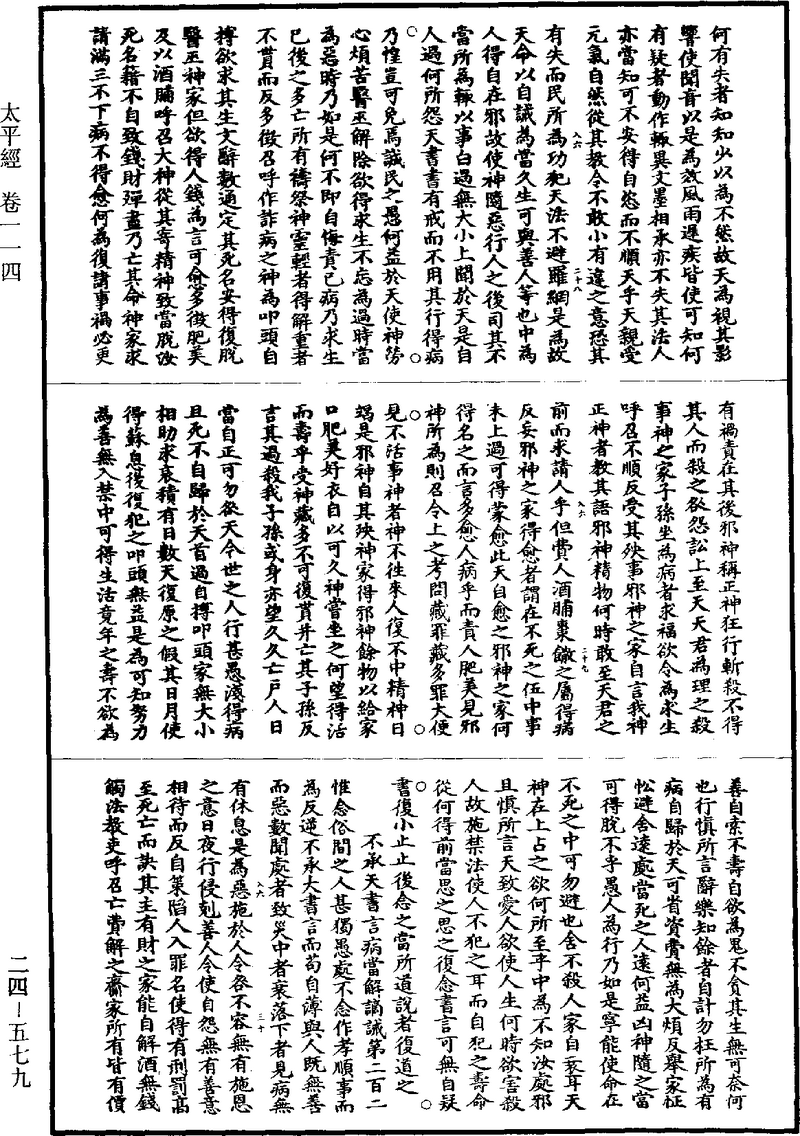 太平經 卷一一四
二四－五七九
何有失者知知少以為不然故天為視其影
響使聞音以是為效風雨遲疾皆使可知何
有疑者動作輒異文墨相承亦不失其法人
亦當知可不安得自恣而不順天乎天親受
元氣自然從其教令不敢小有違之意恐其
有失而民所為功犯天法不避羅網是為故
天命以自誡為當久生可與善人等也中為
人得自在邪故使神隨惡行人之後司其不
當所為輒以事白過無大小上聞於天是自
人過何所怨天書書有戒而不用其行得病
乃惶豈可免焉誠民之愚何益於天使神勞
心煩苦醫巫解除欲得求生不忘為過時當
為惡時乃如是何不即自悔責已病乃求生
已後之多亡所有禱祭神靈輕者得解重者
不貰而反多徵召呼作詐病之神為叩頭自
搏欲求其生文辭數通定其死名安得復脫
醫巫神家但欲得人錢為言可愈多徵肥美
及以酒脯呼召大神從其寄精神致當脫汝
死名籍不自致錢財殫盡乃亡其命神家求
請滿三不下病不得愈何為復請事禍必更
有禍責在其後邪神稱正神狂行斬殺不得
其人而殺之欲怨訟上至天天君為理之殺
事神之家子孫坐為病者求福欲令為求生
呼召不順反受其殃事邪神之家自言我神
正神者教其語邪神精物何時敢至天君之
前而求請人乎但費人酒脯棗饊之屬得病
反妄邪神之家得愈者謂在不死之伍中事
未上過可得蒙愈此天自愈之邪神之家何
得名之而言多愈人病乎而責人肥美見邪
神所為則召令上之考問藏罪藏多罪大便
見不活事神者神不往來人復不中精神日
竭是邪神自其殃神家得邪神餘物以給家
口肥美好衣自以可久神當坐之何望得活
而壽乎受神藏多不可復貰并亡其子孫反
言其過殺我子孫或身亦望久久亡戶人日
當自正可勿欲天令世之人行甚愚淺得病
且死不自歸於天首過自搏叩頭家無大小
相助求哀積有日數天復原之假其日月使
得蘇息後復犯之叩頭無益是為可知努力
為善無入禁中可得生活竟年之壽不欲為
善自索不壽自欲為鬼不貪其生無可奈何
也行慎所言辭樂知餘者自計勿枉所為有
病自歸於天可省資費無為大煩反舉家怔
忪避舍遠處當死之人遠何益凶神隨之當
可得脫不乎愚人為行乃如是寧能使命在
不死之中可勿避也舍不殺人家自衰耳天
神在上占之欲何所至乎中為不知汝處邪
且慎所言天致愛人欲使人生何時欲害殺
人故施禁法使人不犯之耳而自犯之壽命
從何得前當思之思之復念書言可無自疑
書復小止止後念之當所道說者復道之
不承天書言病當解謫誡第二百二
惟念俗間之人甚獨愚處不念作孝順事而
為反逆不承大書言而苟自薄與人既無善
而惡數聞處者致災中者衰落下者見病無
有休息是為惡施於人令咎不容無有施恩
之意日夜行侵剋善人令使自怨無有善意
相待而反自策陷人入罪名使得有刑罰高
至死亡而訣其主有財之家能自解酒無錢
觸法教吏呼召亡費解之齋家所有皆有價